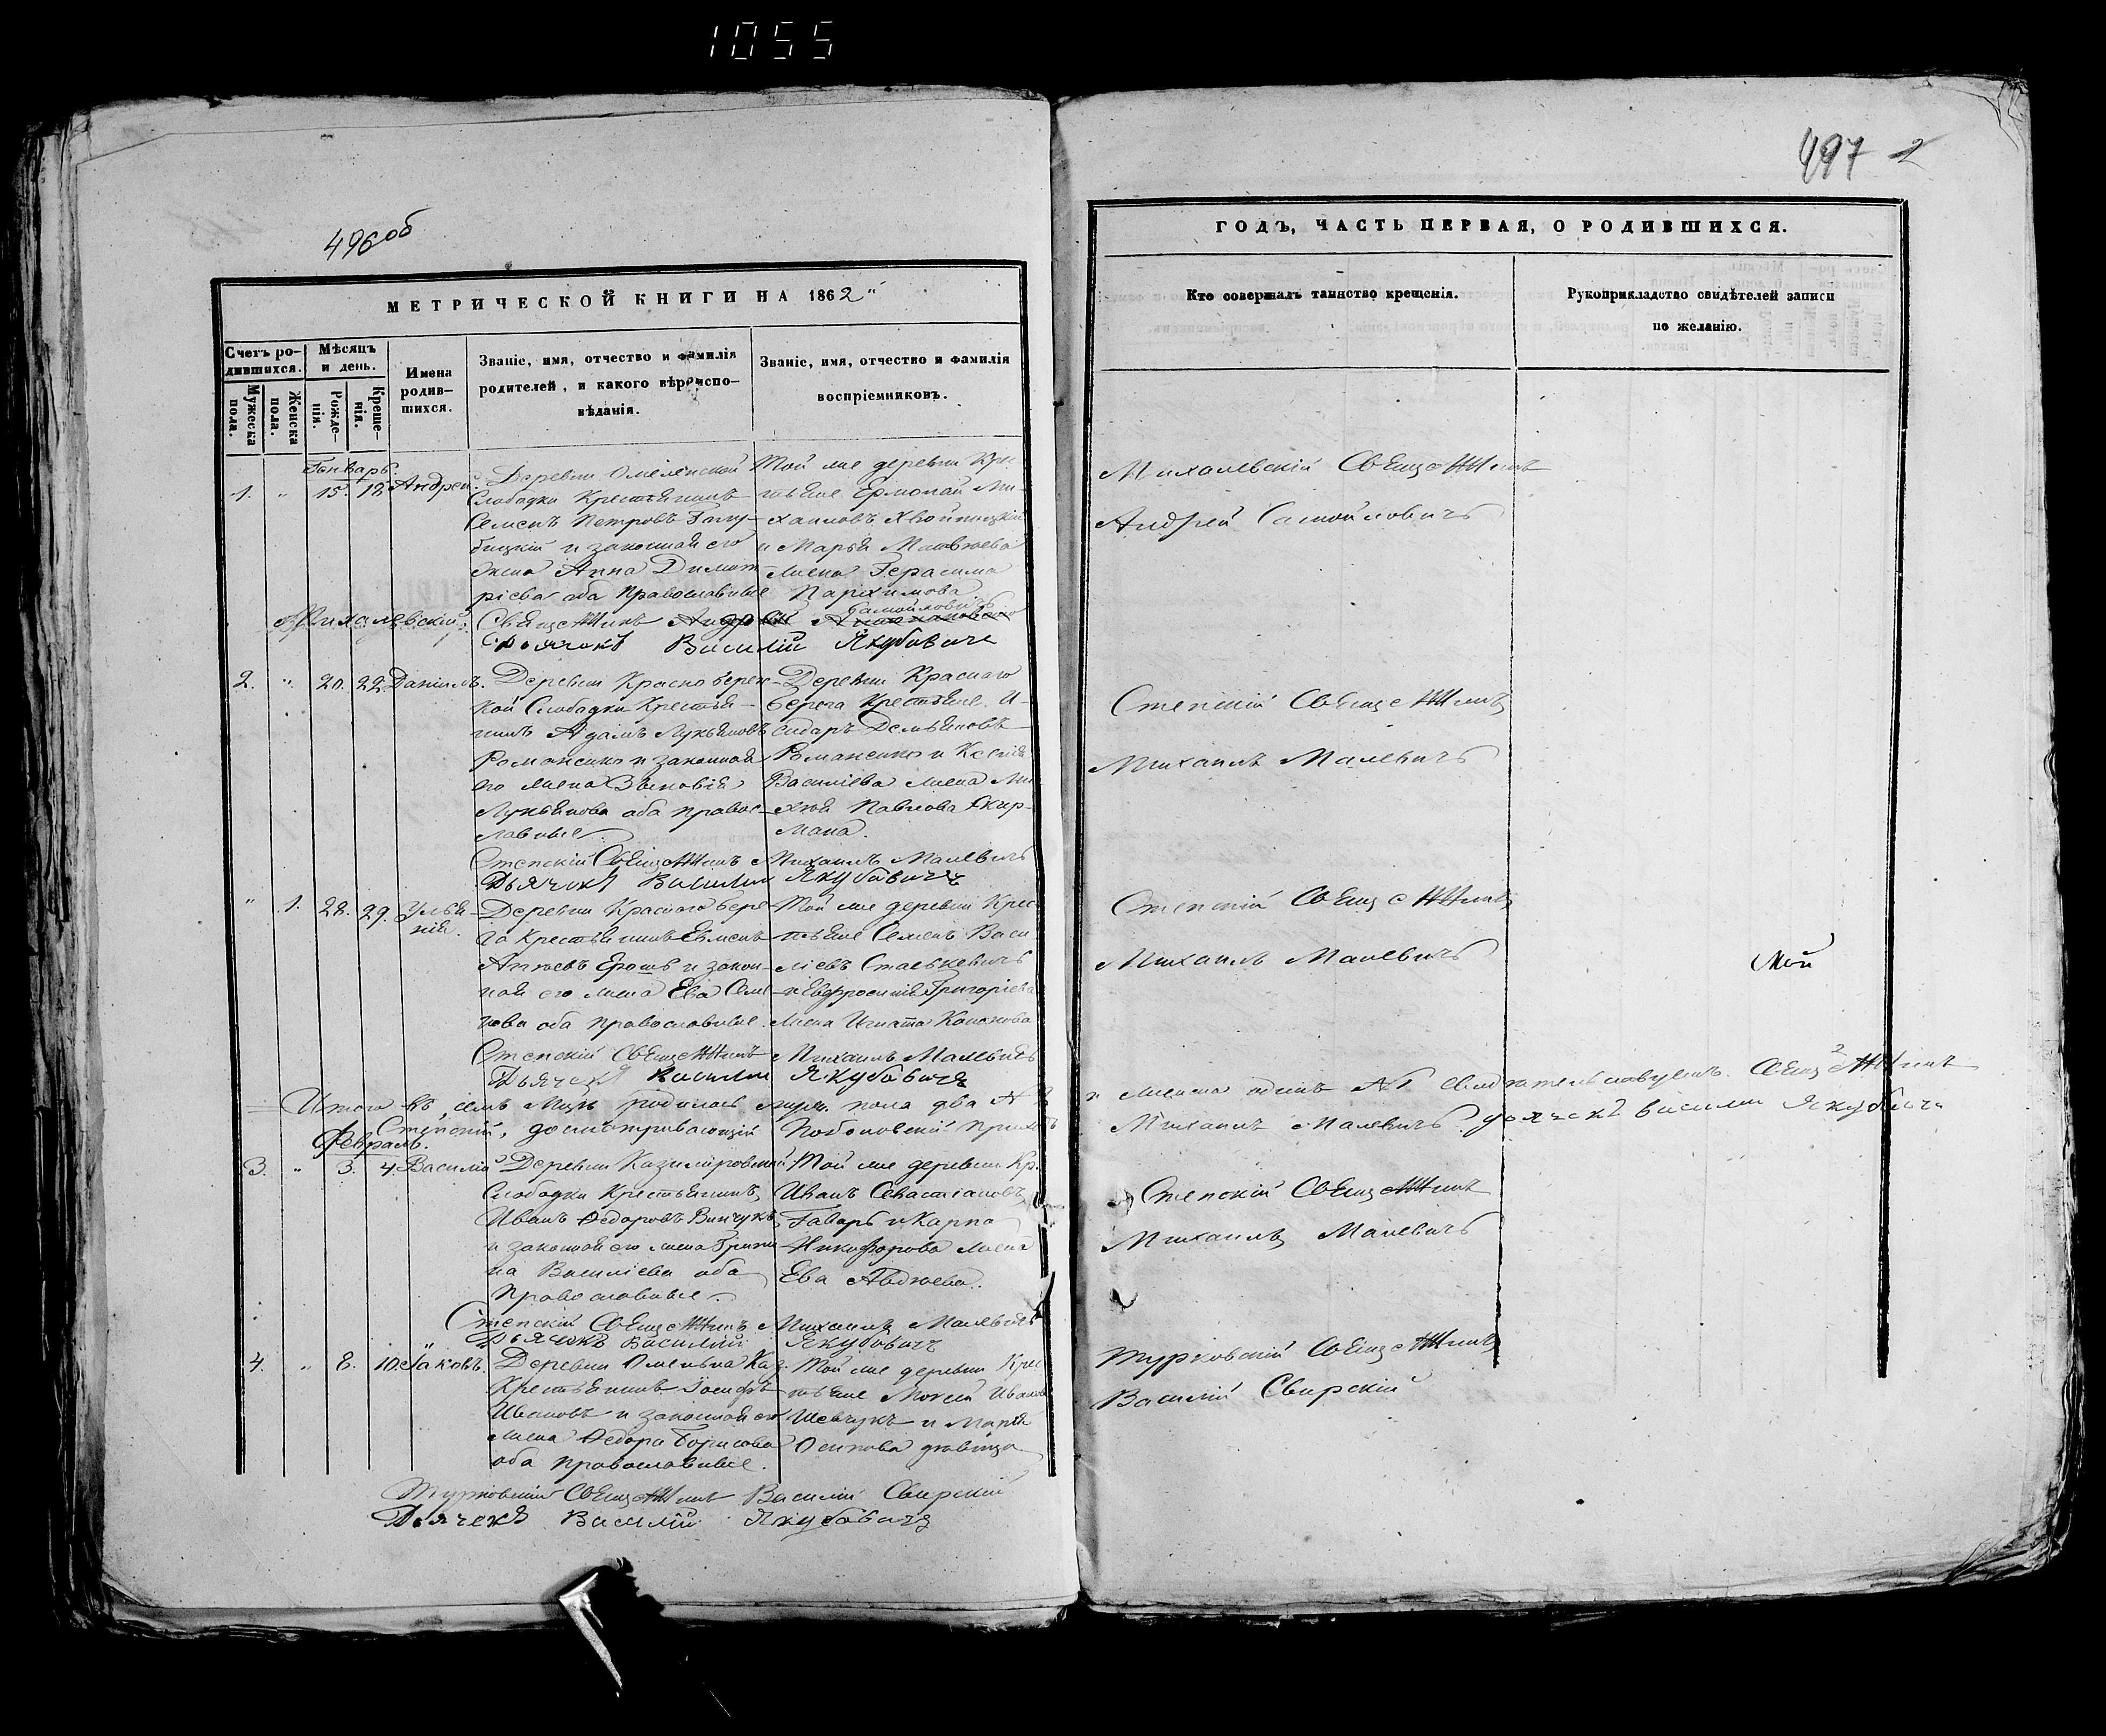 1055
496об
МЕТРИЧЕСКОЙ КНИГИ НА 1862
Счетъ ро-
дившихся.
Мѣсяцъ
и день.
Имена
родив-
шихся.
Званіе, имя, отчество и фамилія
родителей, и какого вѣроиспо-
вѣданія.
Званіе, имя, отчество и фамилія
воспріемниковъ.
Мужеска
пола.
Женска
пола.
Рожде-
нія.
Креще-
нія.
Генварь.
1. " 15. 18. Андрей.
Деревни Омеленской
Слободки Крестьянинъ
Семенъ Петровъ Галу-
бицкій и законная его
жена Анна Димит
ріева оба православные
Той же деревни Кре
тьяне Ермолай Ми-
хаиловъ Хвойницкій
и Марья Матвѣева
жена Герасима
Пархимова
Михалевскій Священникъ Андрей Самойловичъ
Дьячекъ Василій Якубовичъ
2. " 20. 22. Даніилъ.
Деревни Краснобереж-
кой Слободки Крестья-
нинъ Адамъ Лукьяновъ
Романенко и законная
его жена Зѣновія
Лукьянова оба правос-
лавные
Деревни Краснаго
берега Крестьяне И-
сидоръ Демьяновъ
Романенко и Ксенія
Василіева жена Ми
хея Павлова Скир-
мана.
Степскій Священникъ Михаилъ Малевичъ
Дьячекъ Василій Якубовичъ
" 1. 28. 29. Улья-
нія.
Деревни Краснаго бере-
га Крестьянинъ Семенъ
Ерошъ и закон-
ная его жена Ева Семе-
нова оба православные.
Той же деревни Крес
тьяне Семенъ Васи
ліевъ Стаськевичъ
и Евфросинія Григоріева
жена Игната Кононова
Степскій Священникъ Михаилъ Малевичъ
Дьячекъ Василій Якубовичъ
Итого въ семъ Мѣсяцѣ родилось муж. пола два № 2
Степскій, досматривающій Поболовскій приходъ
Февраль.
3. " 3. 4. Василій
Деревни Казимировской
Слободки Крестьянинъ
Иванъ Ѳедоровъ Винчукъ
и законная его жена
Василіева оба
Православные.
Той же деревни Кр.
Иванъ Севастіановъ
и Карпа
Никифорова жена
Ева Авдѣева.
Степскій Священникъ Михаилъ Малевичъ
Дьячекъ Василій Якубовичъ
4. " 8. 10. Іаковъ.
Деревни Омельна Каз.
Крестьянинъ Іосифъ
Ивановъ и законная его
жена Ѳедора Борисова
оба православные.
Той же деревни Кре
тьяне Моисей Иванов
Шевчукъ и Марія
Осипова дѣвица
Турковскій Священникъ Василій Свирскій
Дьячекъ Василій Якубовичъ
497 2
ГОДЪ, ЧАСТЬ ПЕРВАЯ, О РОДИВШИХСЯ.
Кто совершалъ таинство крещенія.
Рукоприкладство свидѣтелей записи
по желанію.
Михалевскій Священникъ
Андрей Самойловичъ
Степскій Священникъ
Михаилъ Малевичъ
Степскій Священникъ
Михаилъ Малевичъ
женска одинъ №1 свидѣтельствуемъ. Священникъ
Михаилъ Малевичъ дьячекъ Василій Якубович
Степскій Священникъ
Михаилъ Малевичъ
Турковскій Священникъ
Василій Свирскій